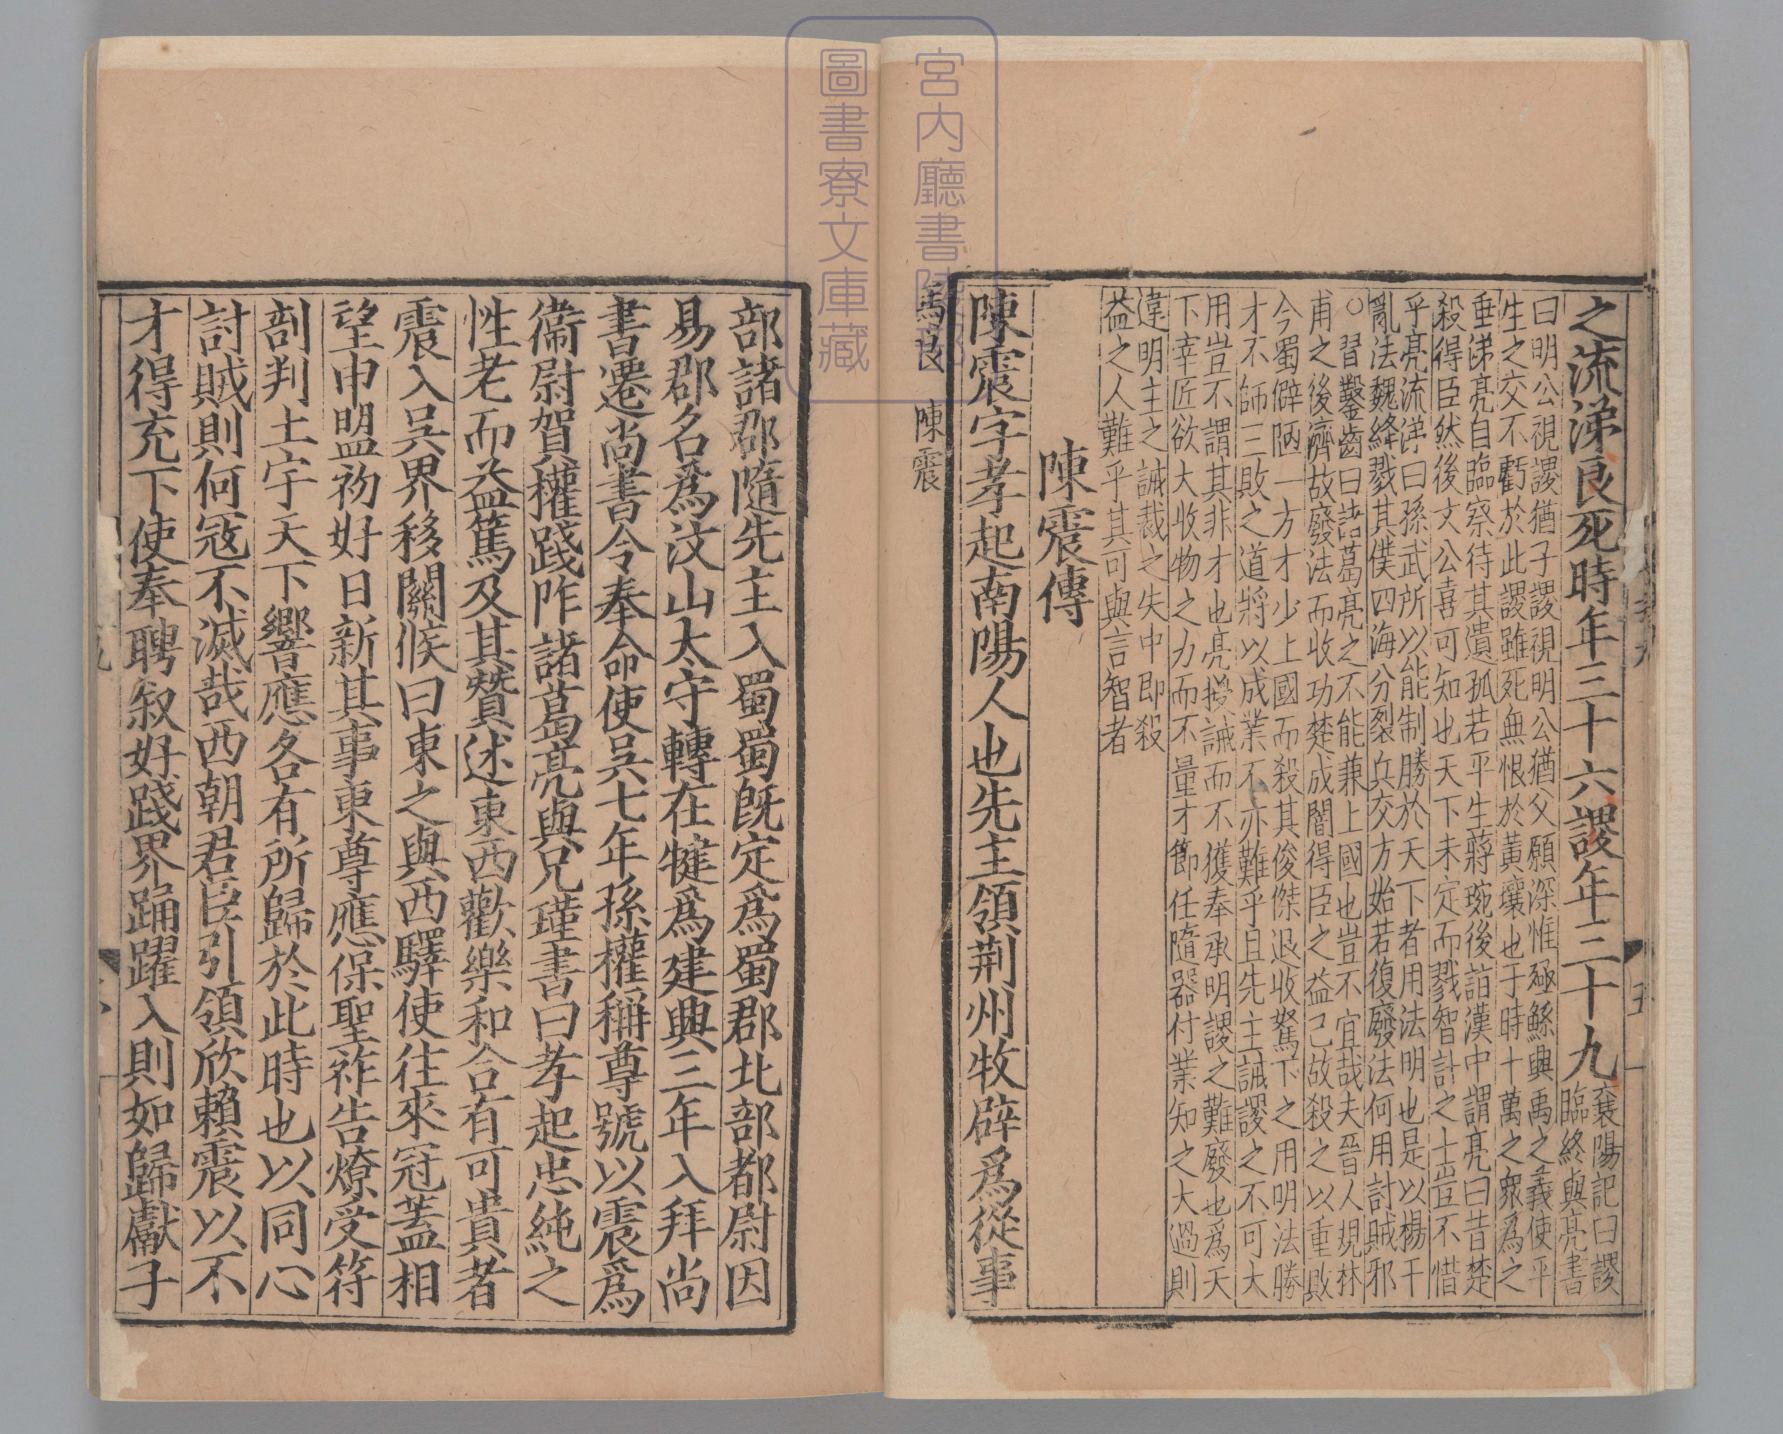 之流涕良死時年三十六謖年三十九
襄陽記曰謖
臨終與亮書
曰明公視謖猶子謖視明公猶父願深惟殛鯀興禹之義使平
生之交不虧於此謖雖死無恨於黃壤也于時十萬之衆爲之
垂涕亮自臨祭待其遺孤若平生蔣琬後詣漢中謂亮曰昔楚
殺得臣然後文公喜可知也天下未定而戮智計之士豈不惜
乎亮流涕曰孫武所以能制勝於天下者用法明也是以楊干
亂法魏絳戮其僕四海分裂兵交方始若復廢法何用討賊邪
○習鑿齒曰諸葛亮之不能兼上國也豈不宜哉夫晉人規林
甫之後濟故廢法而收功楚成闇得臣之益己故殺之以重敗
今蜀僻陋一方才少上國而殺其俊傑退收駑下之用明法勝
才不師三敗之道將以成業不亦難乎且先主誡謖之不可大
用豈不謂其非才也亮授誡而不獲奉承明謖之難廢也爲天
下宰匠欲大收物之力而不量才節任隨器付業知之大過則
違明主之誡裁之失中即殺
益之人難乎其可與言智者
陳震傳
陳震字孝起南陽人也先主領荆州牧辟爲從事
馬良 陳震
宮内廳書陵部
圖書寮文庫藏
部諸郡隨先主入蜀蜀旣定爲蜀郡北部都尉因
易郡名爲汶山太守轉在犍爲建興三年入拜尚
書遷尚書令奉命使吳七年孫權稱尊號以震爲
衞尉賀權踐阼諸葛亮與兄瑾書曰孝起忠純之
性老而益篤及其贊述東西歡樂和合有可貴者
震入吳界移關候曰東之與西驛使往來冠蓋相
望申盟初好日新其事東尊應保聖祚告燎受符
剖判土宇天下響應各有所歸於此時也以同心
討賊則何寇不滅哉西朝君臣引領欣賴震以不
才得充下使奉聘叙好踐界踊躍入則如歸獻子